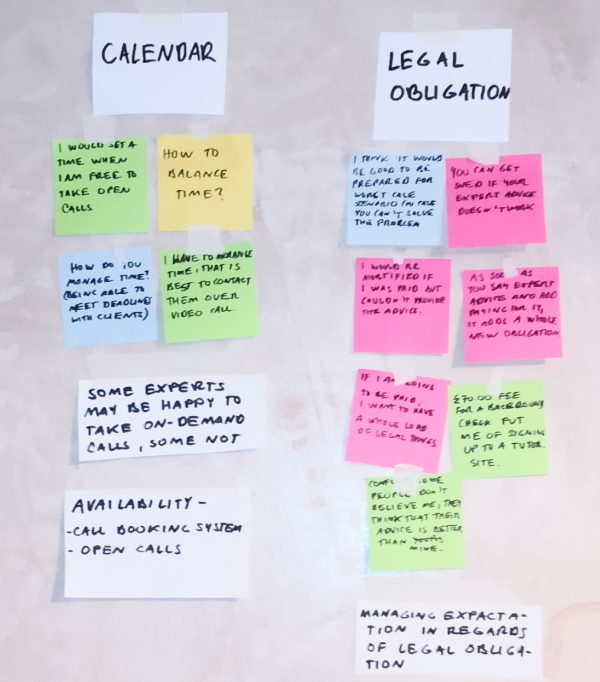 CALENDAR
I WOULD SET A
TIME WHEN
I AM FREE TO
TAKE OPEN
CALLS
HOW TO
BALANCE
TIME?
HOW DO YOU
MANAGE TIME?
(BEING ABLE TO
MEET DEADLINES
WITH CLIENTS)
I HAVE TO ARRANGE
TIME, THAT IS
BEST TO CONTACT
THEM OVER
VIDEO CALL.
SOME EXPERTS
MAY BE HAPPY TO
TAKE ON-DEMAND
CALLS, SOME NOT
AVAILABILITY -
- CALL BOOKING SYSTEM
- OPEN CALLS
LEGAL
OBLIGATION
I THINK IT WOULD
BE GOOD TO BE
PREPARED FOR
WORST CASE
SENARIO IN CASE
YOU CAN'T SOLVE
THE PROBLEM
YOU CAN GET
SUED IF YOUR
EXPERT ADVICE
DOESN'T WORK
I WOULD BE
MORTIFIED IF
I WAS PAID BUT
COULDN'T PROVIDE
THE ADVICE.
AS SOON AS
YOU SAY EXPERT
ADVICE AND ADD
PAYING FOR IT,
IT ADDS A WHOLE
NEW OBLIGATION
IF I AM GOING
TO BE PAID,
I WANT TO HAVE
A WHOLE LOAD
OF LEGAL THINGS
£70.00 FEE
FOR A BACKGROUND
CHECK PUT
ME OF SIGNING
UP TO A TUTOR
SITE.
SOME
PEOPLE DON'T
BELIEVE ME, THEY
THINK THAT THEIR
ADVICE IS BETTER
THAN
MINE.
MANAGING EXPACTA-
TION IN REGARDS
OF LEGAL OBLIGA-
TION